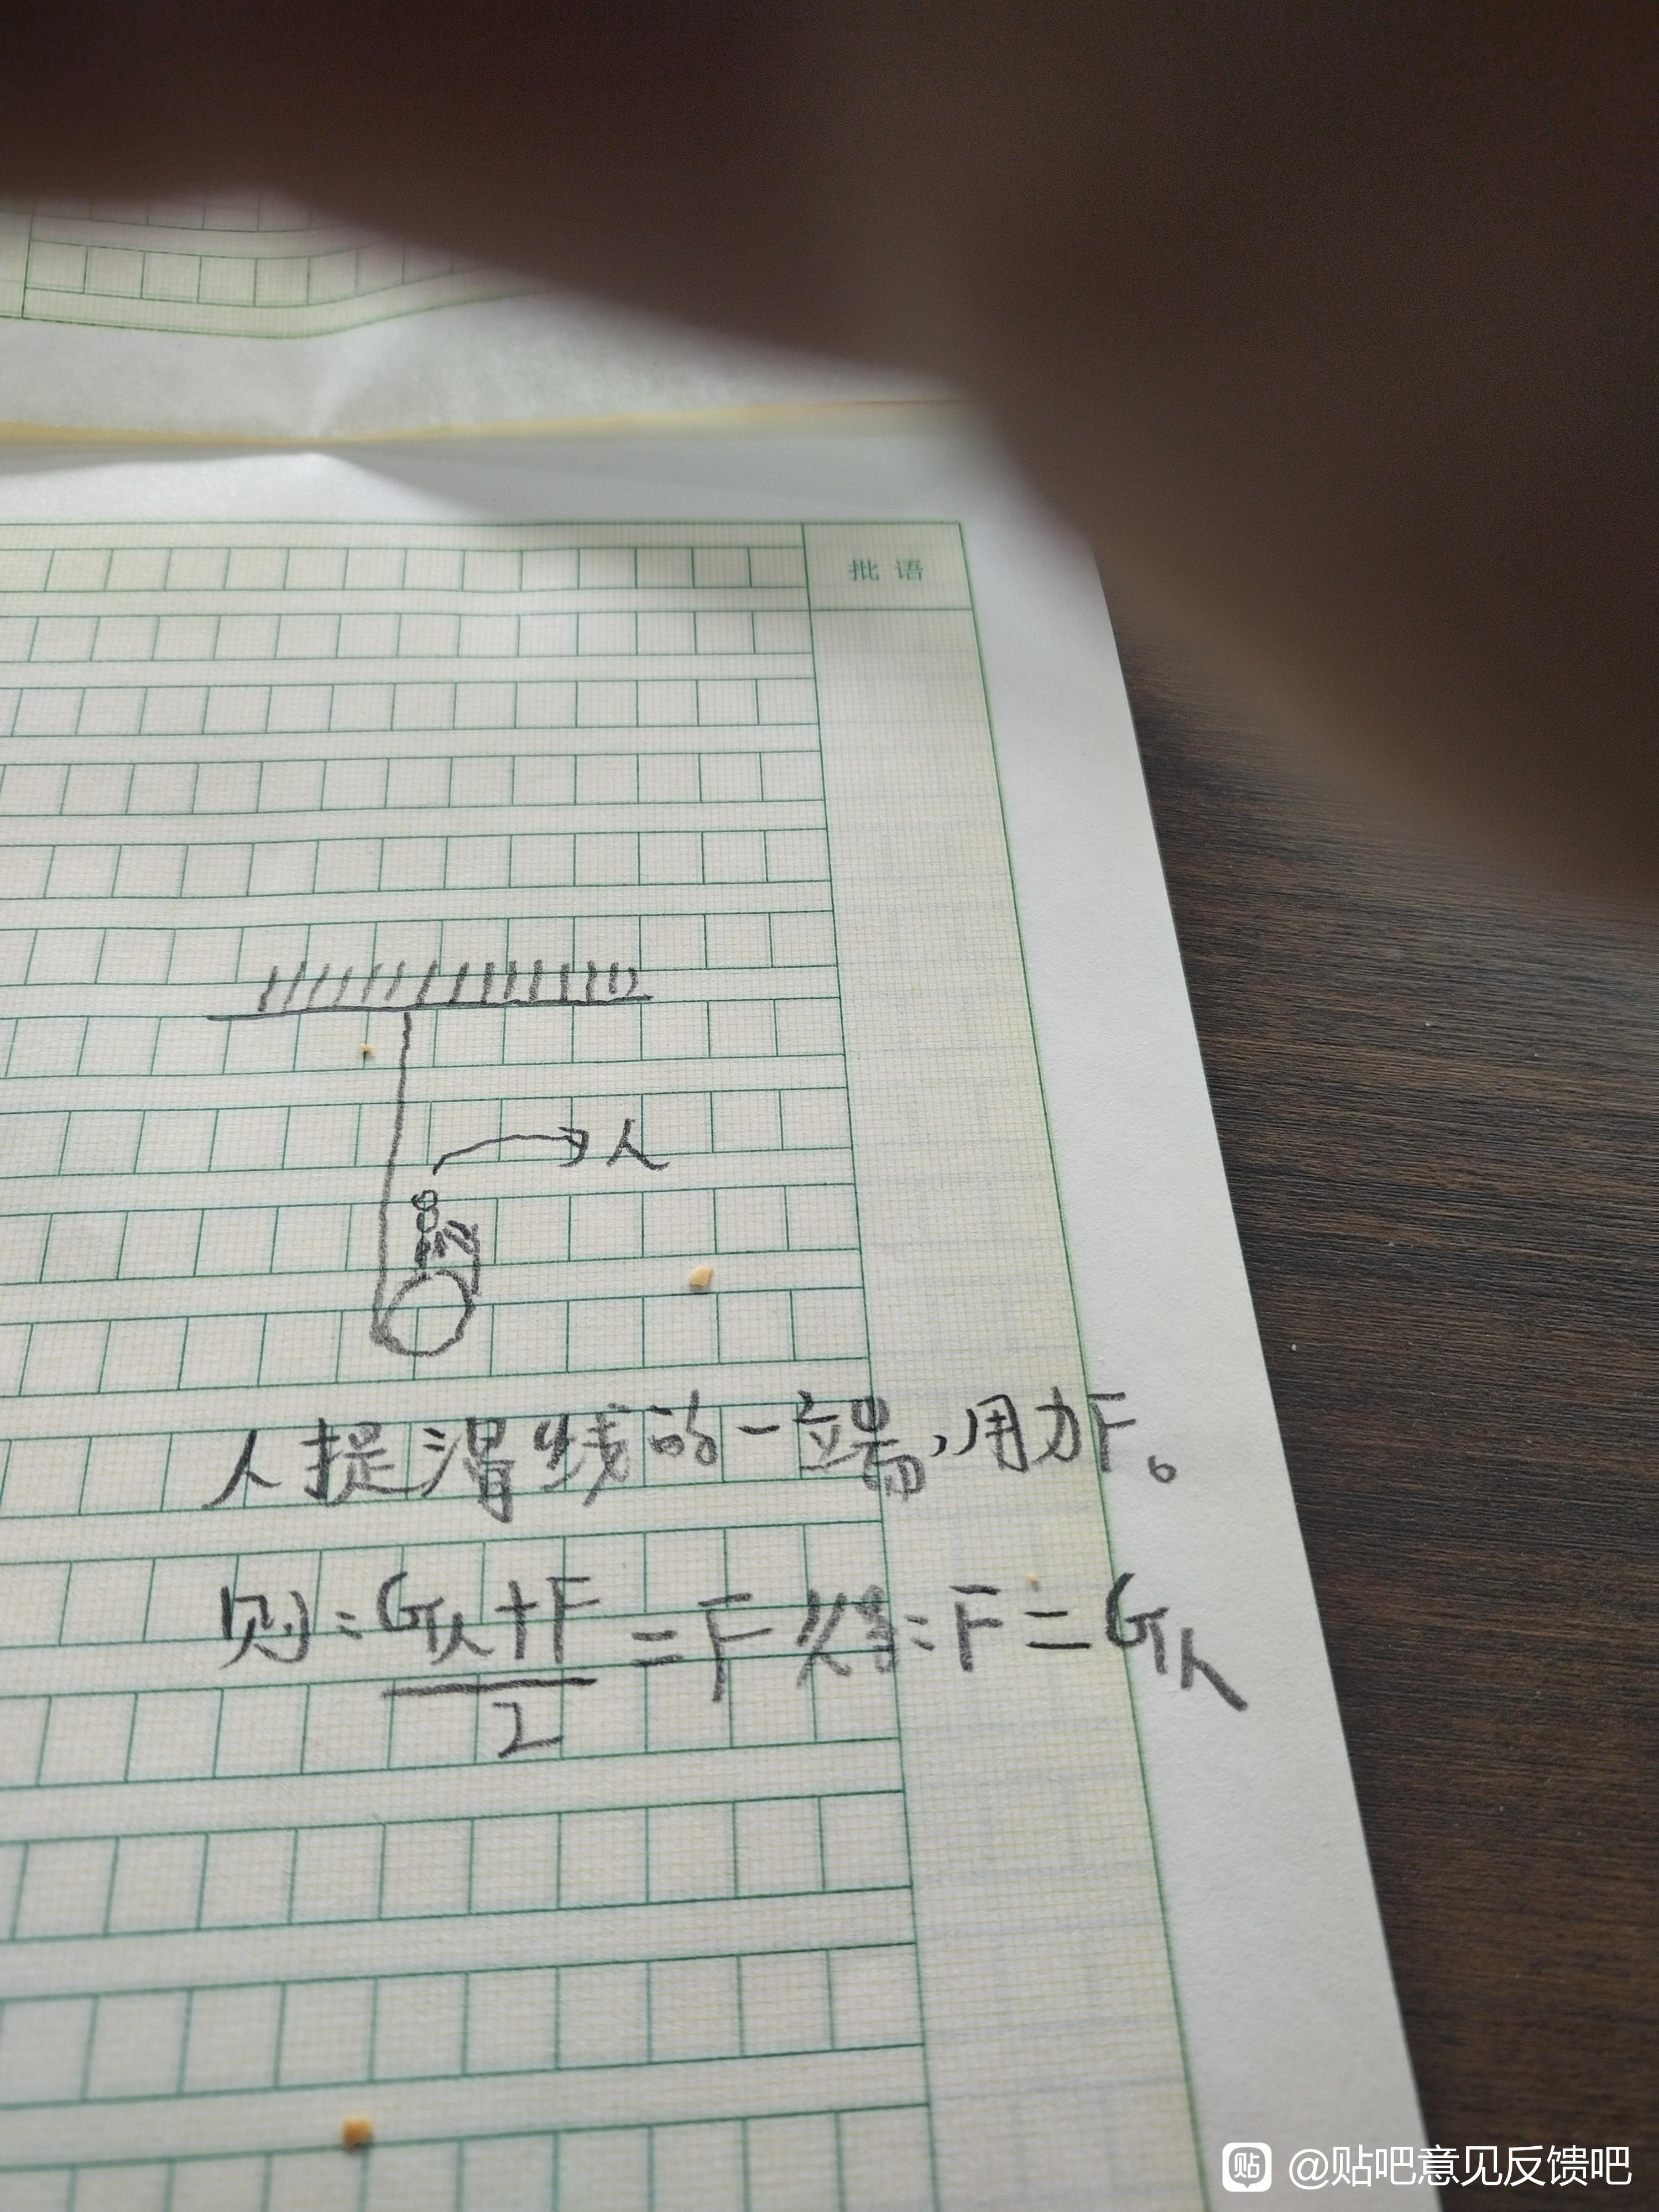 批语
人
人提滑线的一端,用力F。
则:G人+F/2=F 得:F=G人
@贴吧意见反馈吧